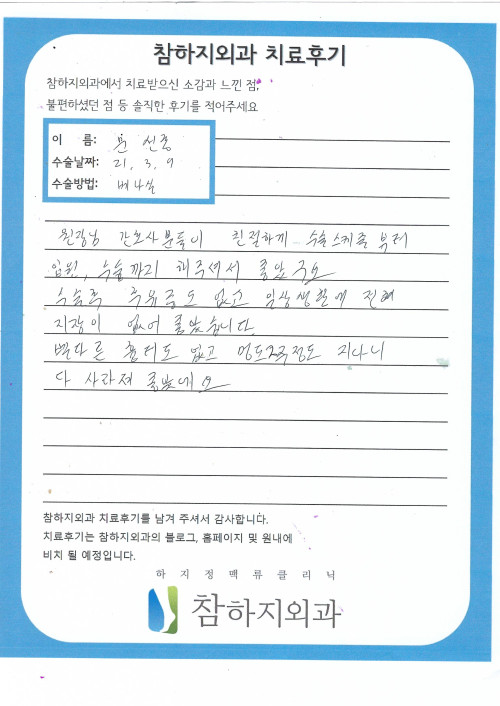 참하지외과 치료후기
참하지외과에서 치료받으신 소감과 느낀 점,
불편하셨던 점 등 솔직한 후기를 적어주세요
이 름: 문선종
수술날짜: 21, 3, 9
수술방법: 베나실
원장님 간호사분들이 친절하게 수술스케줄 부터
입원, 수술까지 해주셔서 좋았구요
수술후 후유증도 없고 일상생활에 전혀
지장이 없어 좋았습니다
별다른 흉터도 없고 멍도 2주정도 지나니
다 사라져 좋았네요
참하지외과 치료후기를 남겨 주셔서 감사합니다.
치료후기는 참하지외과의 블로그, 홈페이지 및 원내에
비치 될 예정입니다.
하지정맥류클리닉
참하지외과